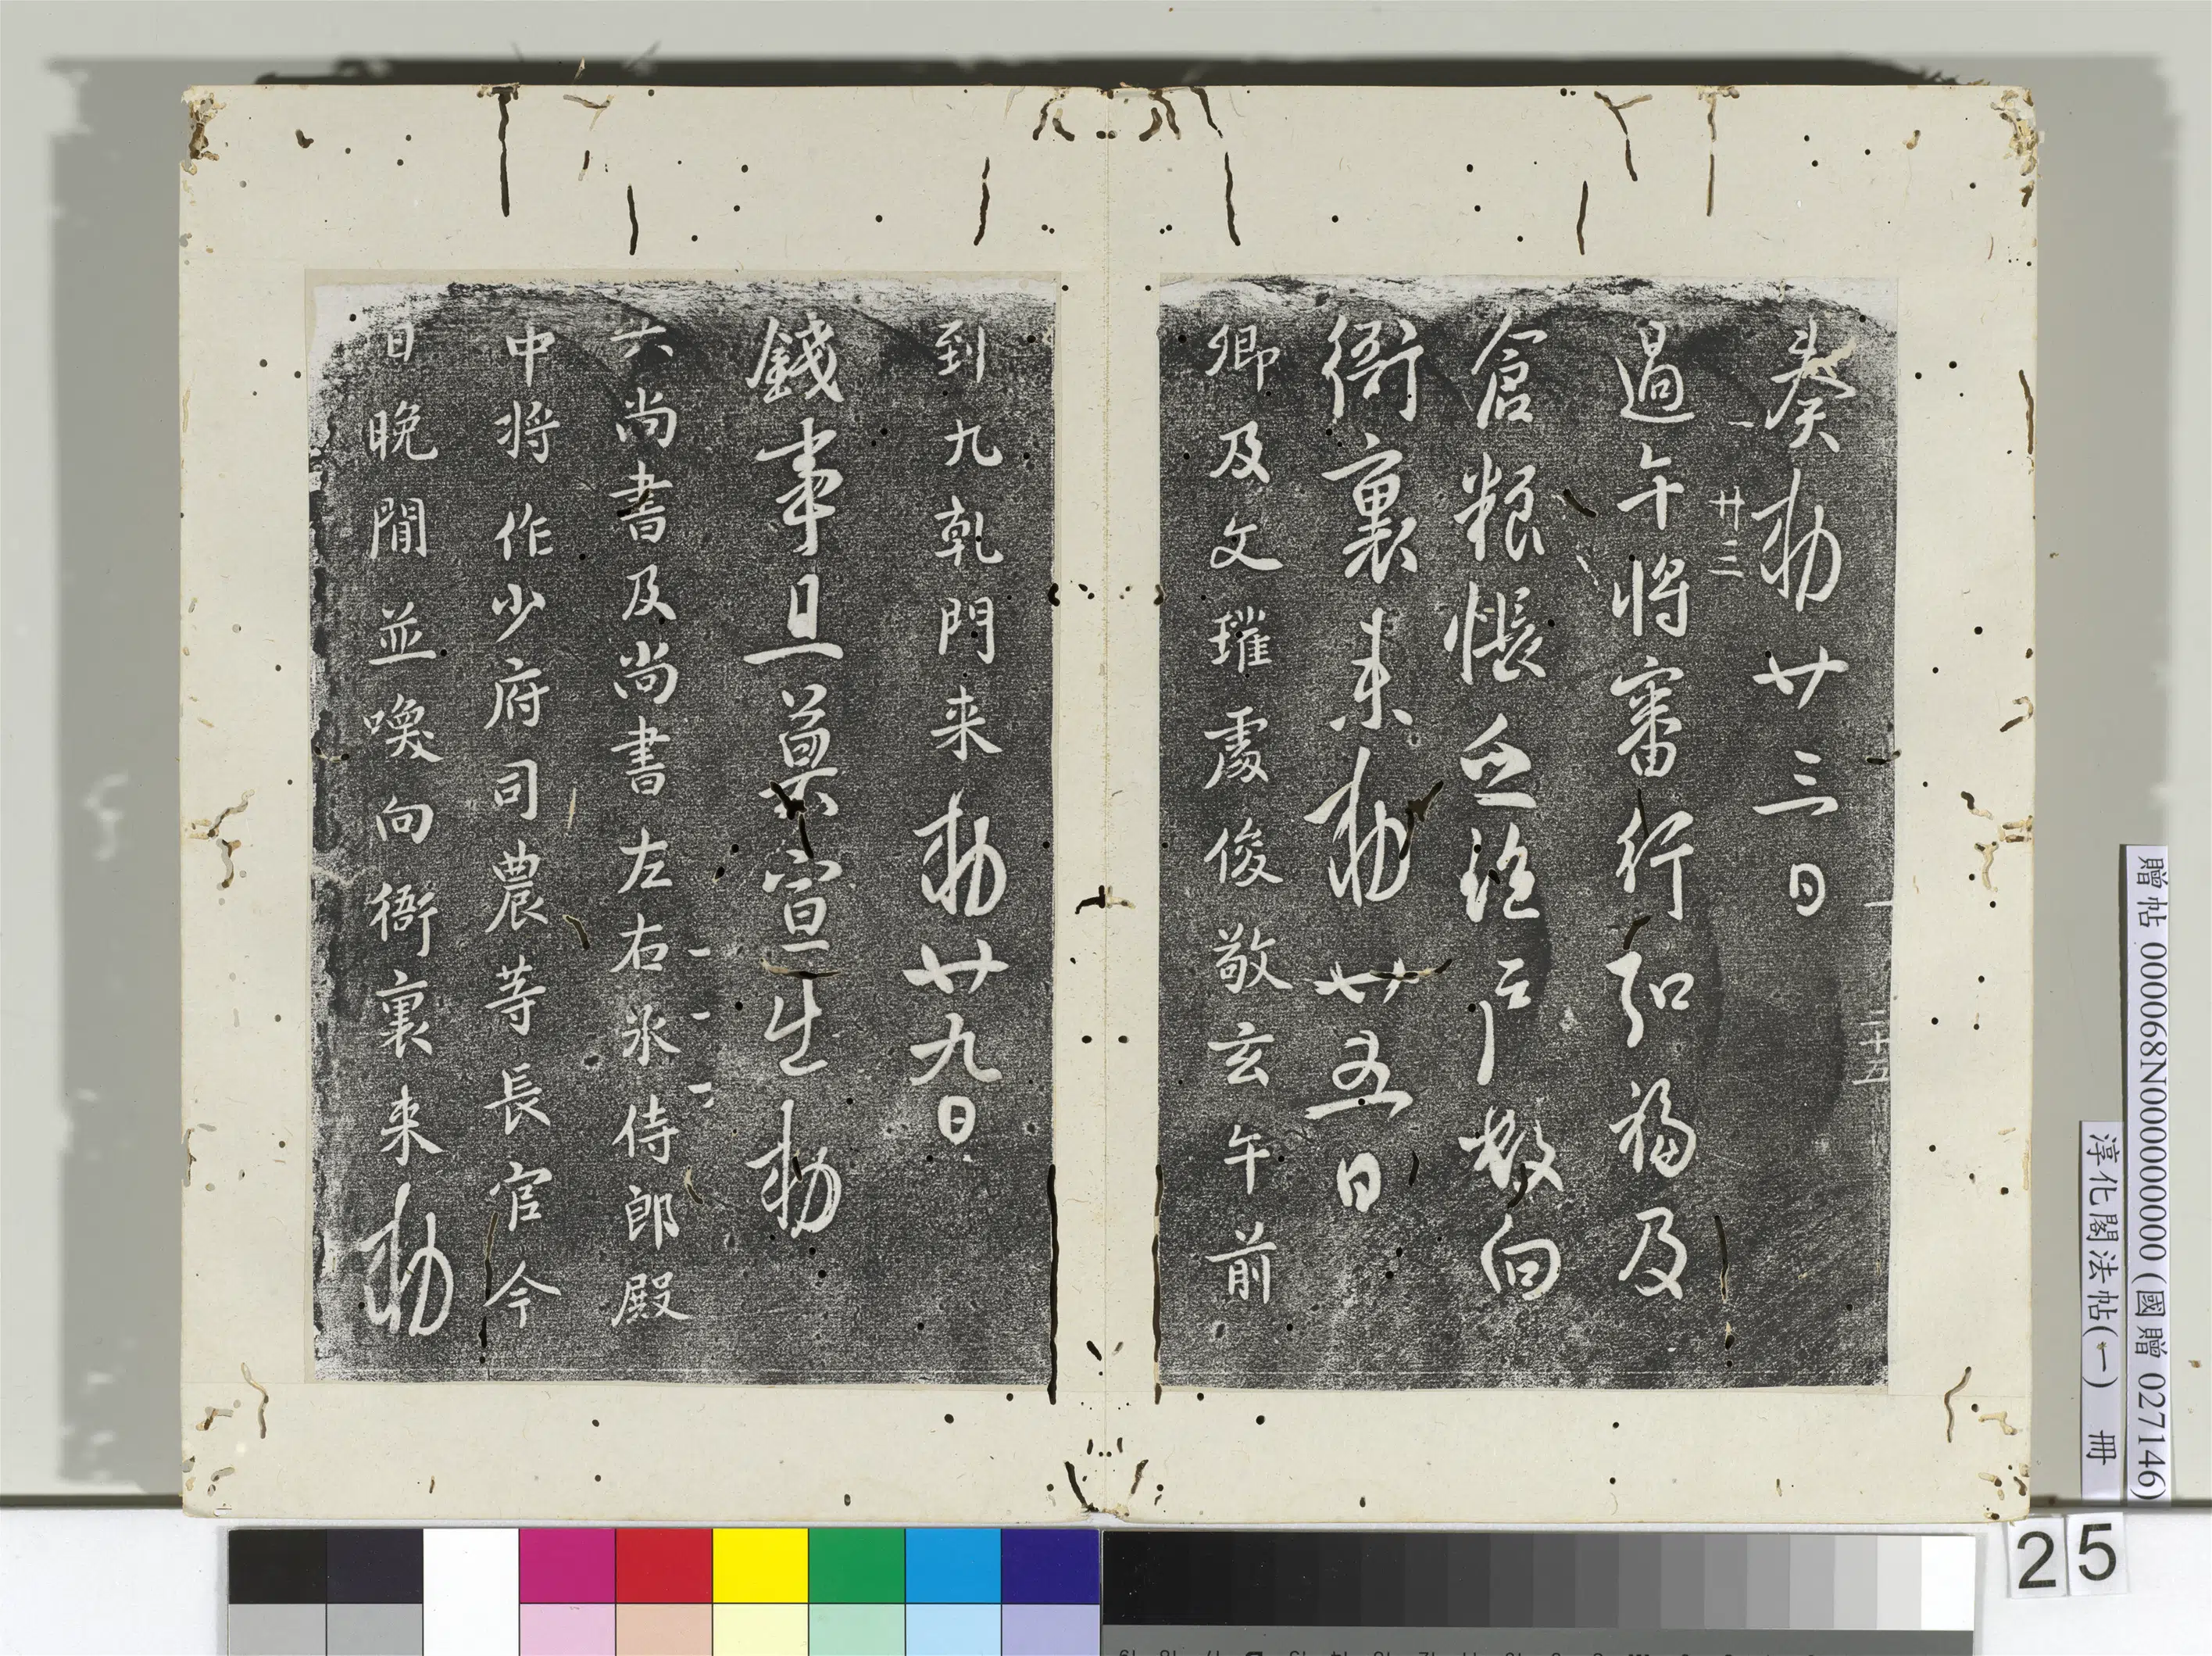 奏勅廿三日
廿三
過午將審行弘福及
倉粮帳 户 向
衙裏来勅廿五日
卿及文瓘處俊敬玄午前
到九乾門来勅廿九日
錢事且莫宣生勅
六尚書及尚書左右丞侍郎殿
中将作少府司農等長官今
日晚間並喚向衙裏来勅
二十五
贈帖 000068N000000000 (國贈 027146)
淳化閣法帖(一) 冊
25